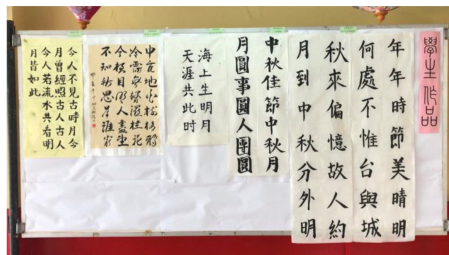 學生作品
年年時節美晴明
何處不惟台與城
秋來偏憶故人約
月到中秋分外明
中秋佳節中秋月
月圓事圓人團圓
海上生明月
天涯共此时
中庭地白樹棲鴉
冷露無聲濕桂花
今夜月明人盡望
不知秋思落誰家
今人不見古時月今
月曾經照古人古人
今人若流水共看明
月皆如此